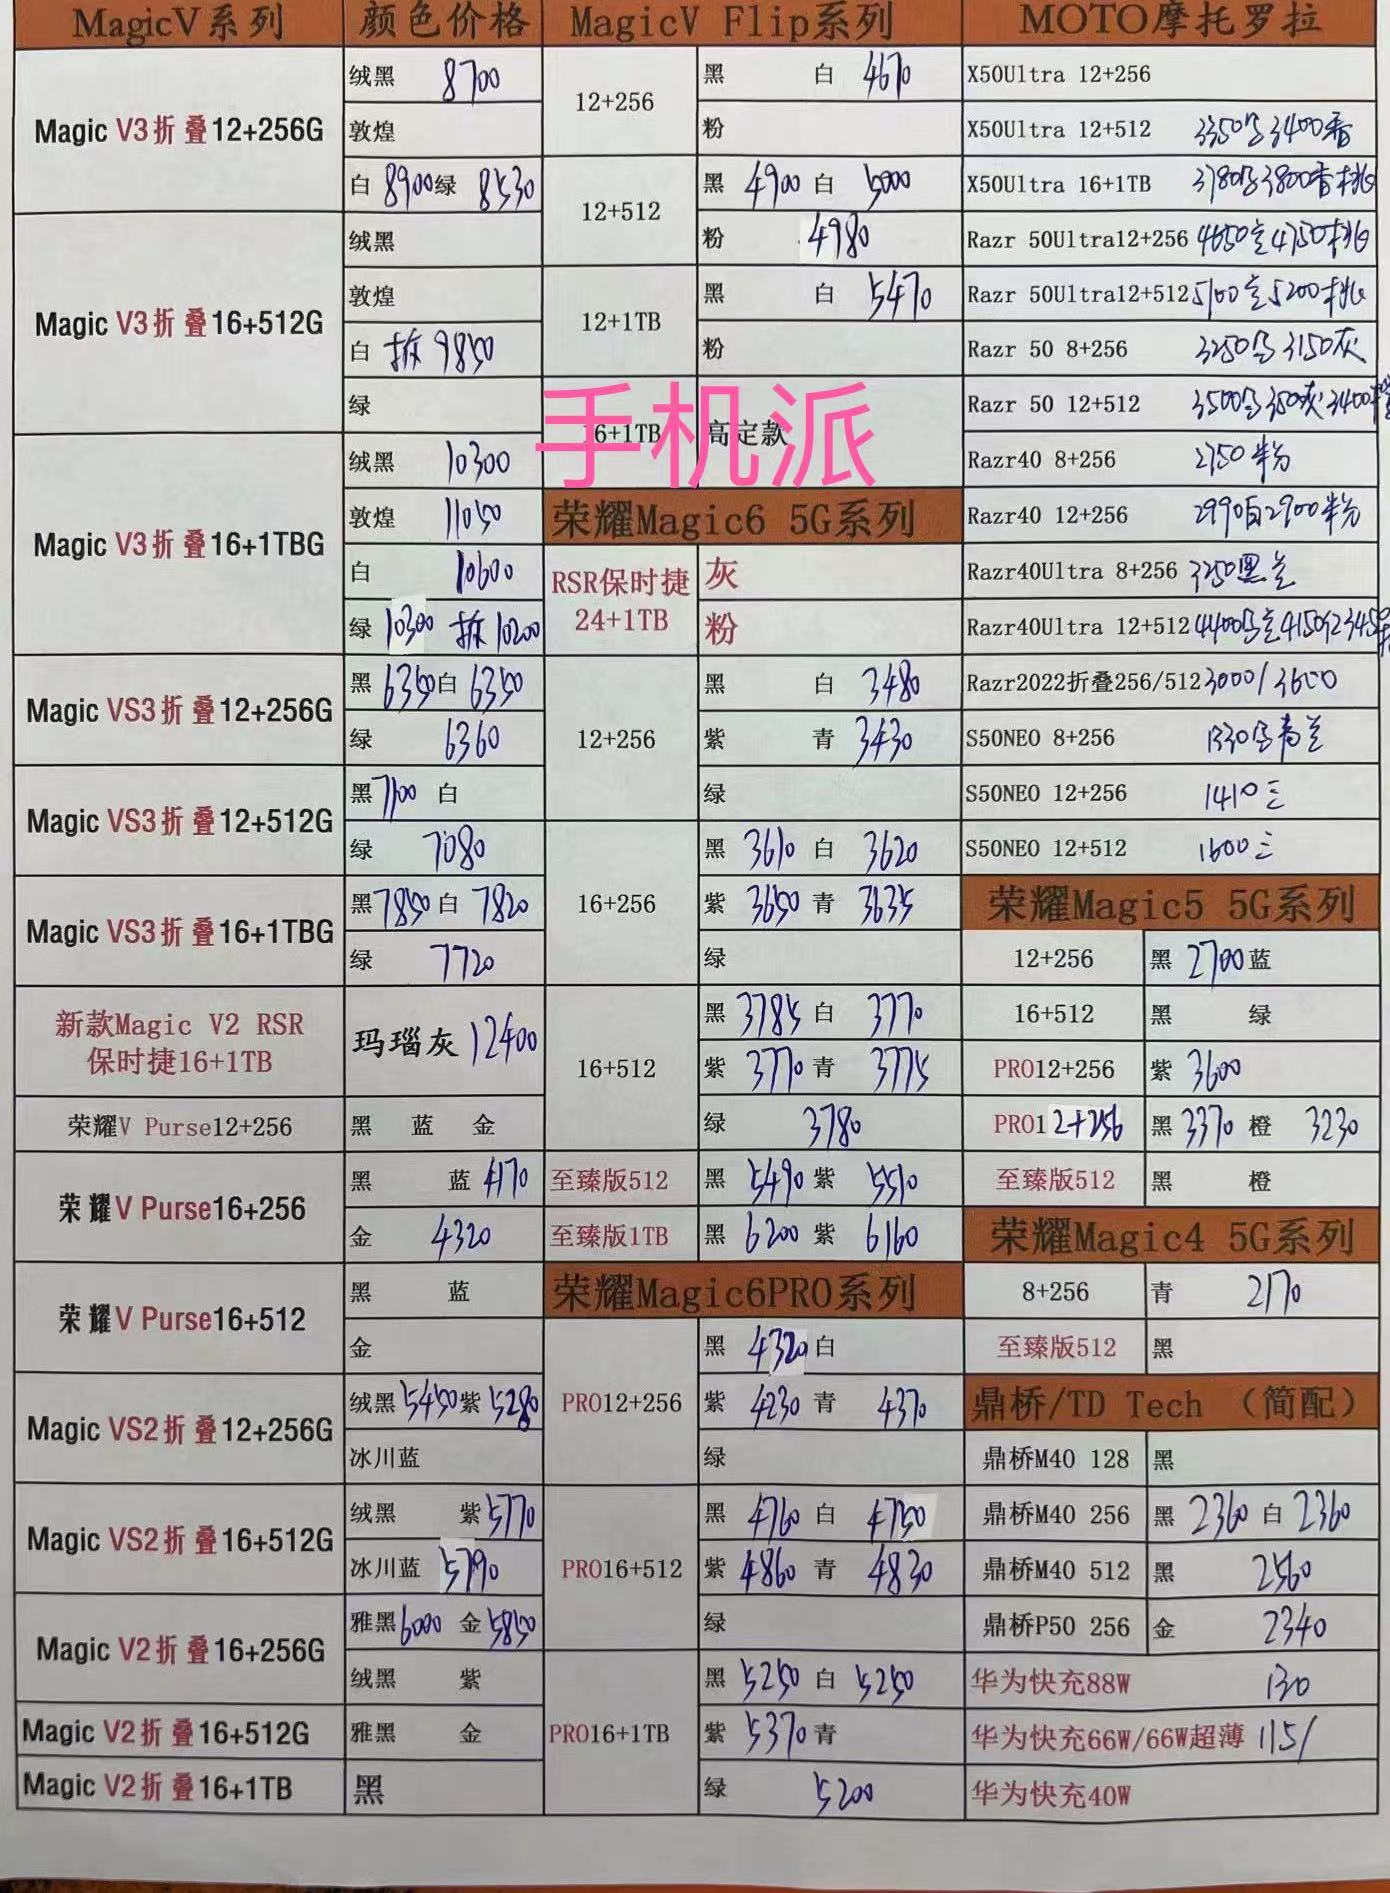 MagicV系列
颜色价格
Magic V3折叠12+256G
绒黑 8700
敦煌
白 8900 绿 8530
Magic V3折叠16+512G
绒黑
敦煌
白 拆 9850
绿
Magic V3折叠16+1TBG
绒黑 10300
敦煌 11050
白 10600
绿 10300 拆 10200
Magic VS3折叠12+256G
黑 6350 白 6350
绿 6360
Magic VS3折叠12+512G
黑 7100 白
绿 7080
Magic VS3折叠16+1TBG
黑 7850 白 7820
绿 7720
新款Magic V2 RSR
保时捷16+1TB
玛瑙灰 12400
荣耀V Purse12+256
黑 蓝 金
荣耀V Purse16+256
黑 蓝 4170
金 4320
荣耀V Purse16+512
黑 蓝
金
Magic VS2折叠12+256G
绒黑 5450 紫 5280
冰川蓝
Magic VS2折叠16+512G
绒黑 紫 5770
冰川蓝 5790
Magic V2折叠16+256G
雅黑 6000 金 5850
绒黑 紫
Magic V2折叠16+512G
雅黑 金
Magic V2折叠16+1TB
黑
MagicV Flip系列
12+256
黑 白 4670
粉
12+512
黑 4900 白 5000
粉 4980
12+1TB
黑 白 5470
粉
手机派
16+1TB 高定款
荣耀Magic6 5G系列
RSR保时捷
24+1TB
灰
粉
12+256
黑 白 3480
紫 青 3430
绿
16+256
黑 3610 白 3620
紫 3650 青 3635
绿
16+512
黑 3785 白 3770
紫 3770 青 3775
绿 3780
至臻版512 黑 5490 紫 5510
至臻版1TB 黑 6200 紫 6160
荣耀Magic6PRO系列
PRO12+256
黑 4320 白
紫 4230 青 4370
绿
PRO16+512
黑 4760 白 4750
紫 4860 青 4830
绿
PRO16+1TB
黑 5250 白 5250
紫 5370 青
绿 5200
MOTO摩托罗拉
X50Ultra 12+256
X50Ultra 12+512 3350 3400
X50Ultra 16+1TB 3780 3800
Razr 50Ultra12+256 4650 4750
Razr 50Ultra12+512 5100 5200
Razr 50 8+256 3250 3150灰
Razr 50 12+512 3500
Razr40 8+256 2750粉
Razr40 12+256 2990白2900粉
Razr40Ultra 8+256 3250黑兰
Razr40Ultra 12+512 4400
Razr2022折叠256/512 3000/3600
S50NEO 8+256 1330
S50NEO 12+256 1410三
S50NEO 12+512 1600三
荣耀Magic5 5G系列
12+256 黑 2700 蓝
16+512 黑 绿
PRO12+256 紫 3600
PRO12+256 黑 3370 橙 3230
至臻版512 黑 橙
荣耀Magic4 5G系列
8+256 青 2170
至臻版512 黑
鼎桥/TD Tech （简配）
鼎桥M40 128 黑
鼎桥M40 256 黑 2360 白 2360
鼎桥M40 512 黑 2560
鼎桥P50 256 金 2340
华为快充88W 130
华为快充66W/66W超薄 115/
华为快充40W